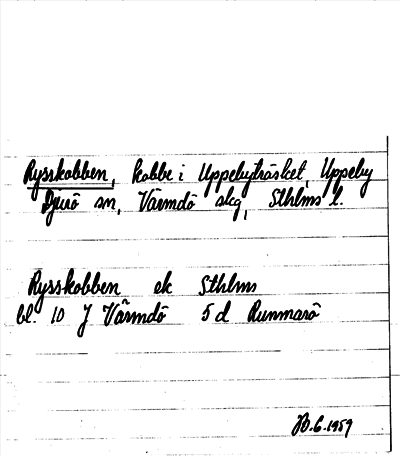 Rysskobben, kobbe i Uppebyträsket, Uppeby
Djurö sn, Värmdö skg, Sthlms l.
Rysskobben ek Sthlms
bl. 10 J Värmdö 5 d Runmarö
6.1959